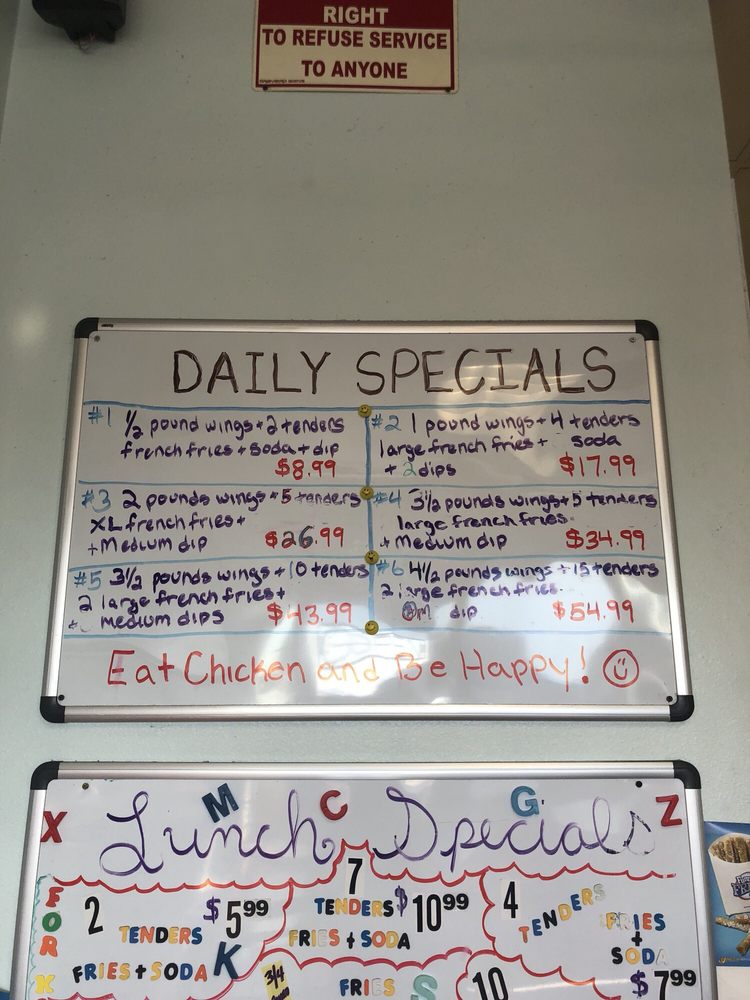 RIGHT
TO REFUSE SERVICE
TO ANYONE
DAILY SPECIALS
#1 1/2 pound wings + 2 tenders
french fries + soda + dip
$8.99
#2 1 pound wings + 4 tenders
large french fries + soda
+ 2 dips $17.99
#3 2 pounds wings + 5 tenders
XL french fries +
+ Medium dip $26.99
#4 3 1/2 pounds wings + 5 tenders
large french fries
+ Medium dip $34.99
#5 3 1/2 pounds wings + 10 tenders
2 large french fries +
medium dips $43.99
#6 4 1/2 pounds wings + 15 tenders
2 large french fries
dip $54.99
Eat Chicken and Be Happy!
X M C G Z
Lunch Specials
FOR K
2 TENDERS $5.99
FRIES + SODA K
7 TENDERS $10.99
FRIES + SODA
4 TENDERS FRIES
+
SODA
$7.99
3/4
FRIES S
10